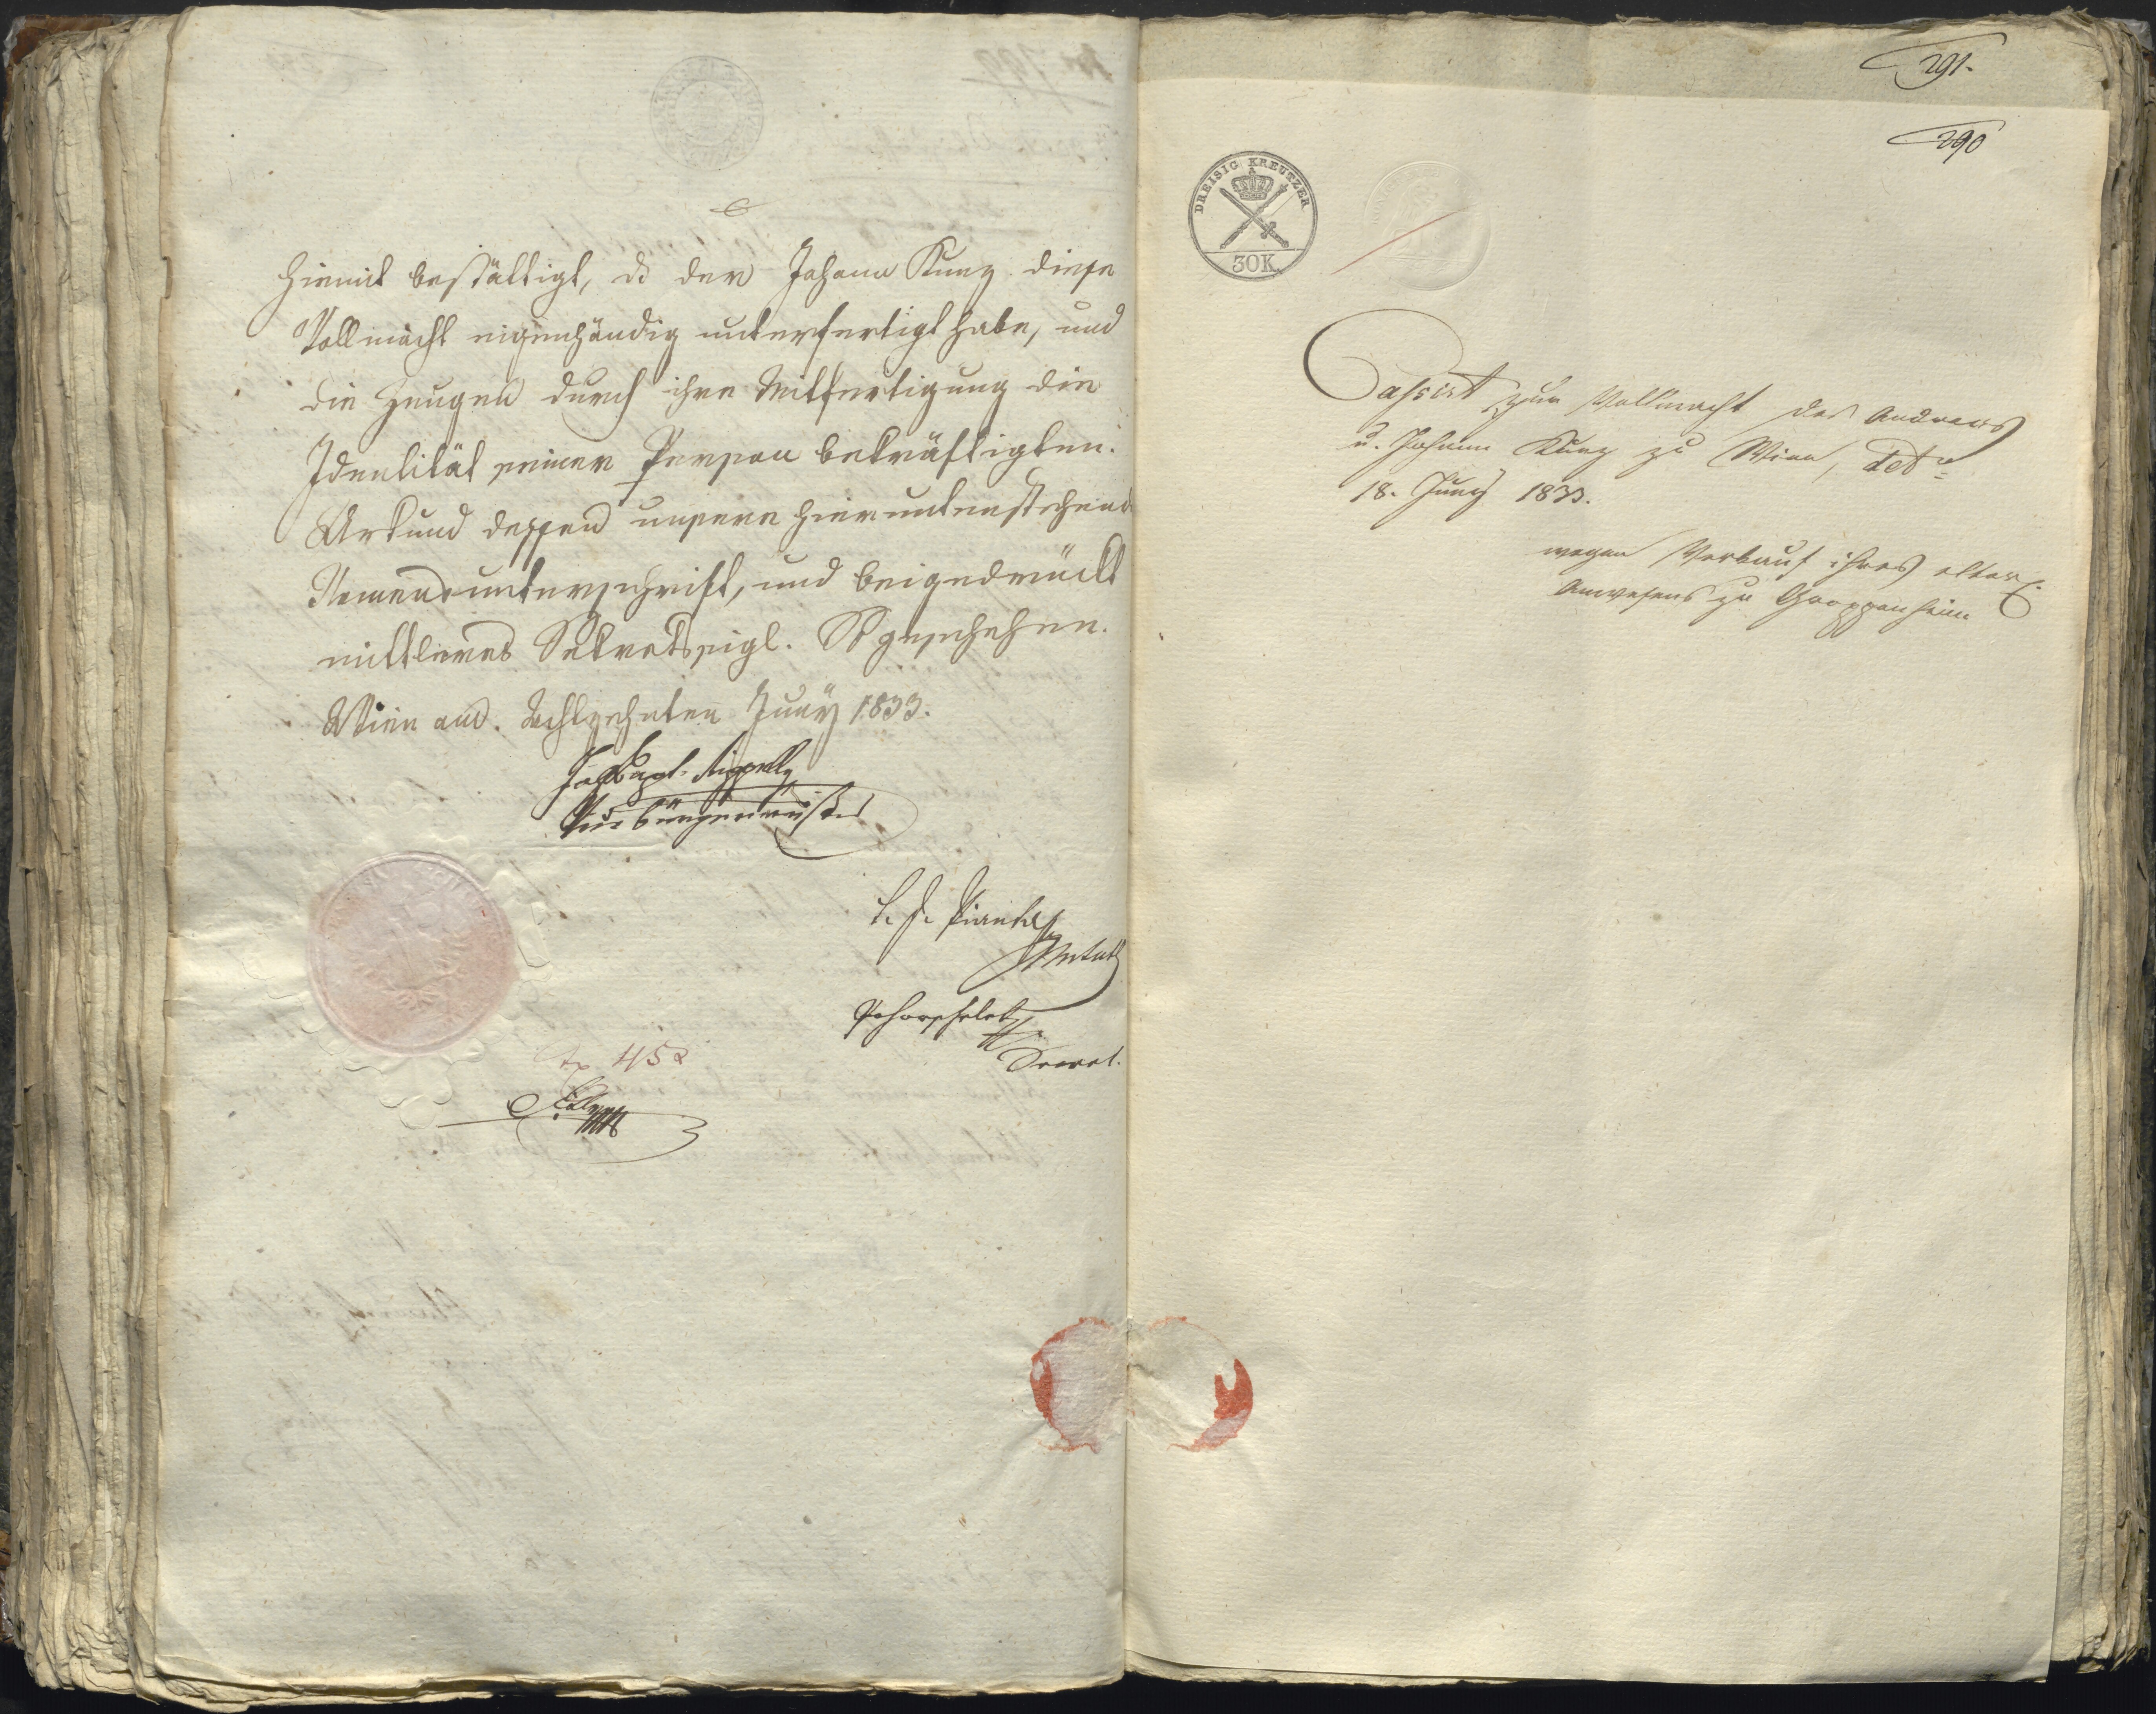 hiemit bestättigt, ds der Johann Kunz diese
Vollmacht eigenhändig unterfertigt habe, und
die Zeugen durch ihre Mitfertigung die
Identität seiner Person bekräftigten.
Urkund dessen unsere hieruntenstehende
Namensunterschrift, und beigedruckt
mittleres Sekretsigl. So geschehen.
Wien am Achtzehnten Juny 1833.
Vicebürgermeister
Secret.
45 x
291.
290
DREISIG KREUTZER
30K.
Passirt zur Vollmacht des Andreas
u. Johann Kunz zu Wien, ddto
18. Juny 1833.
wegen Verkauf ihres älterl.
Anwesens zu